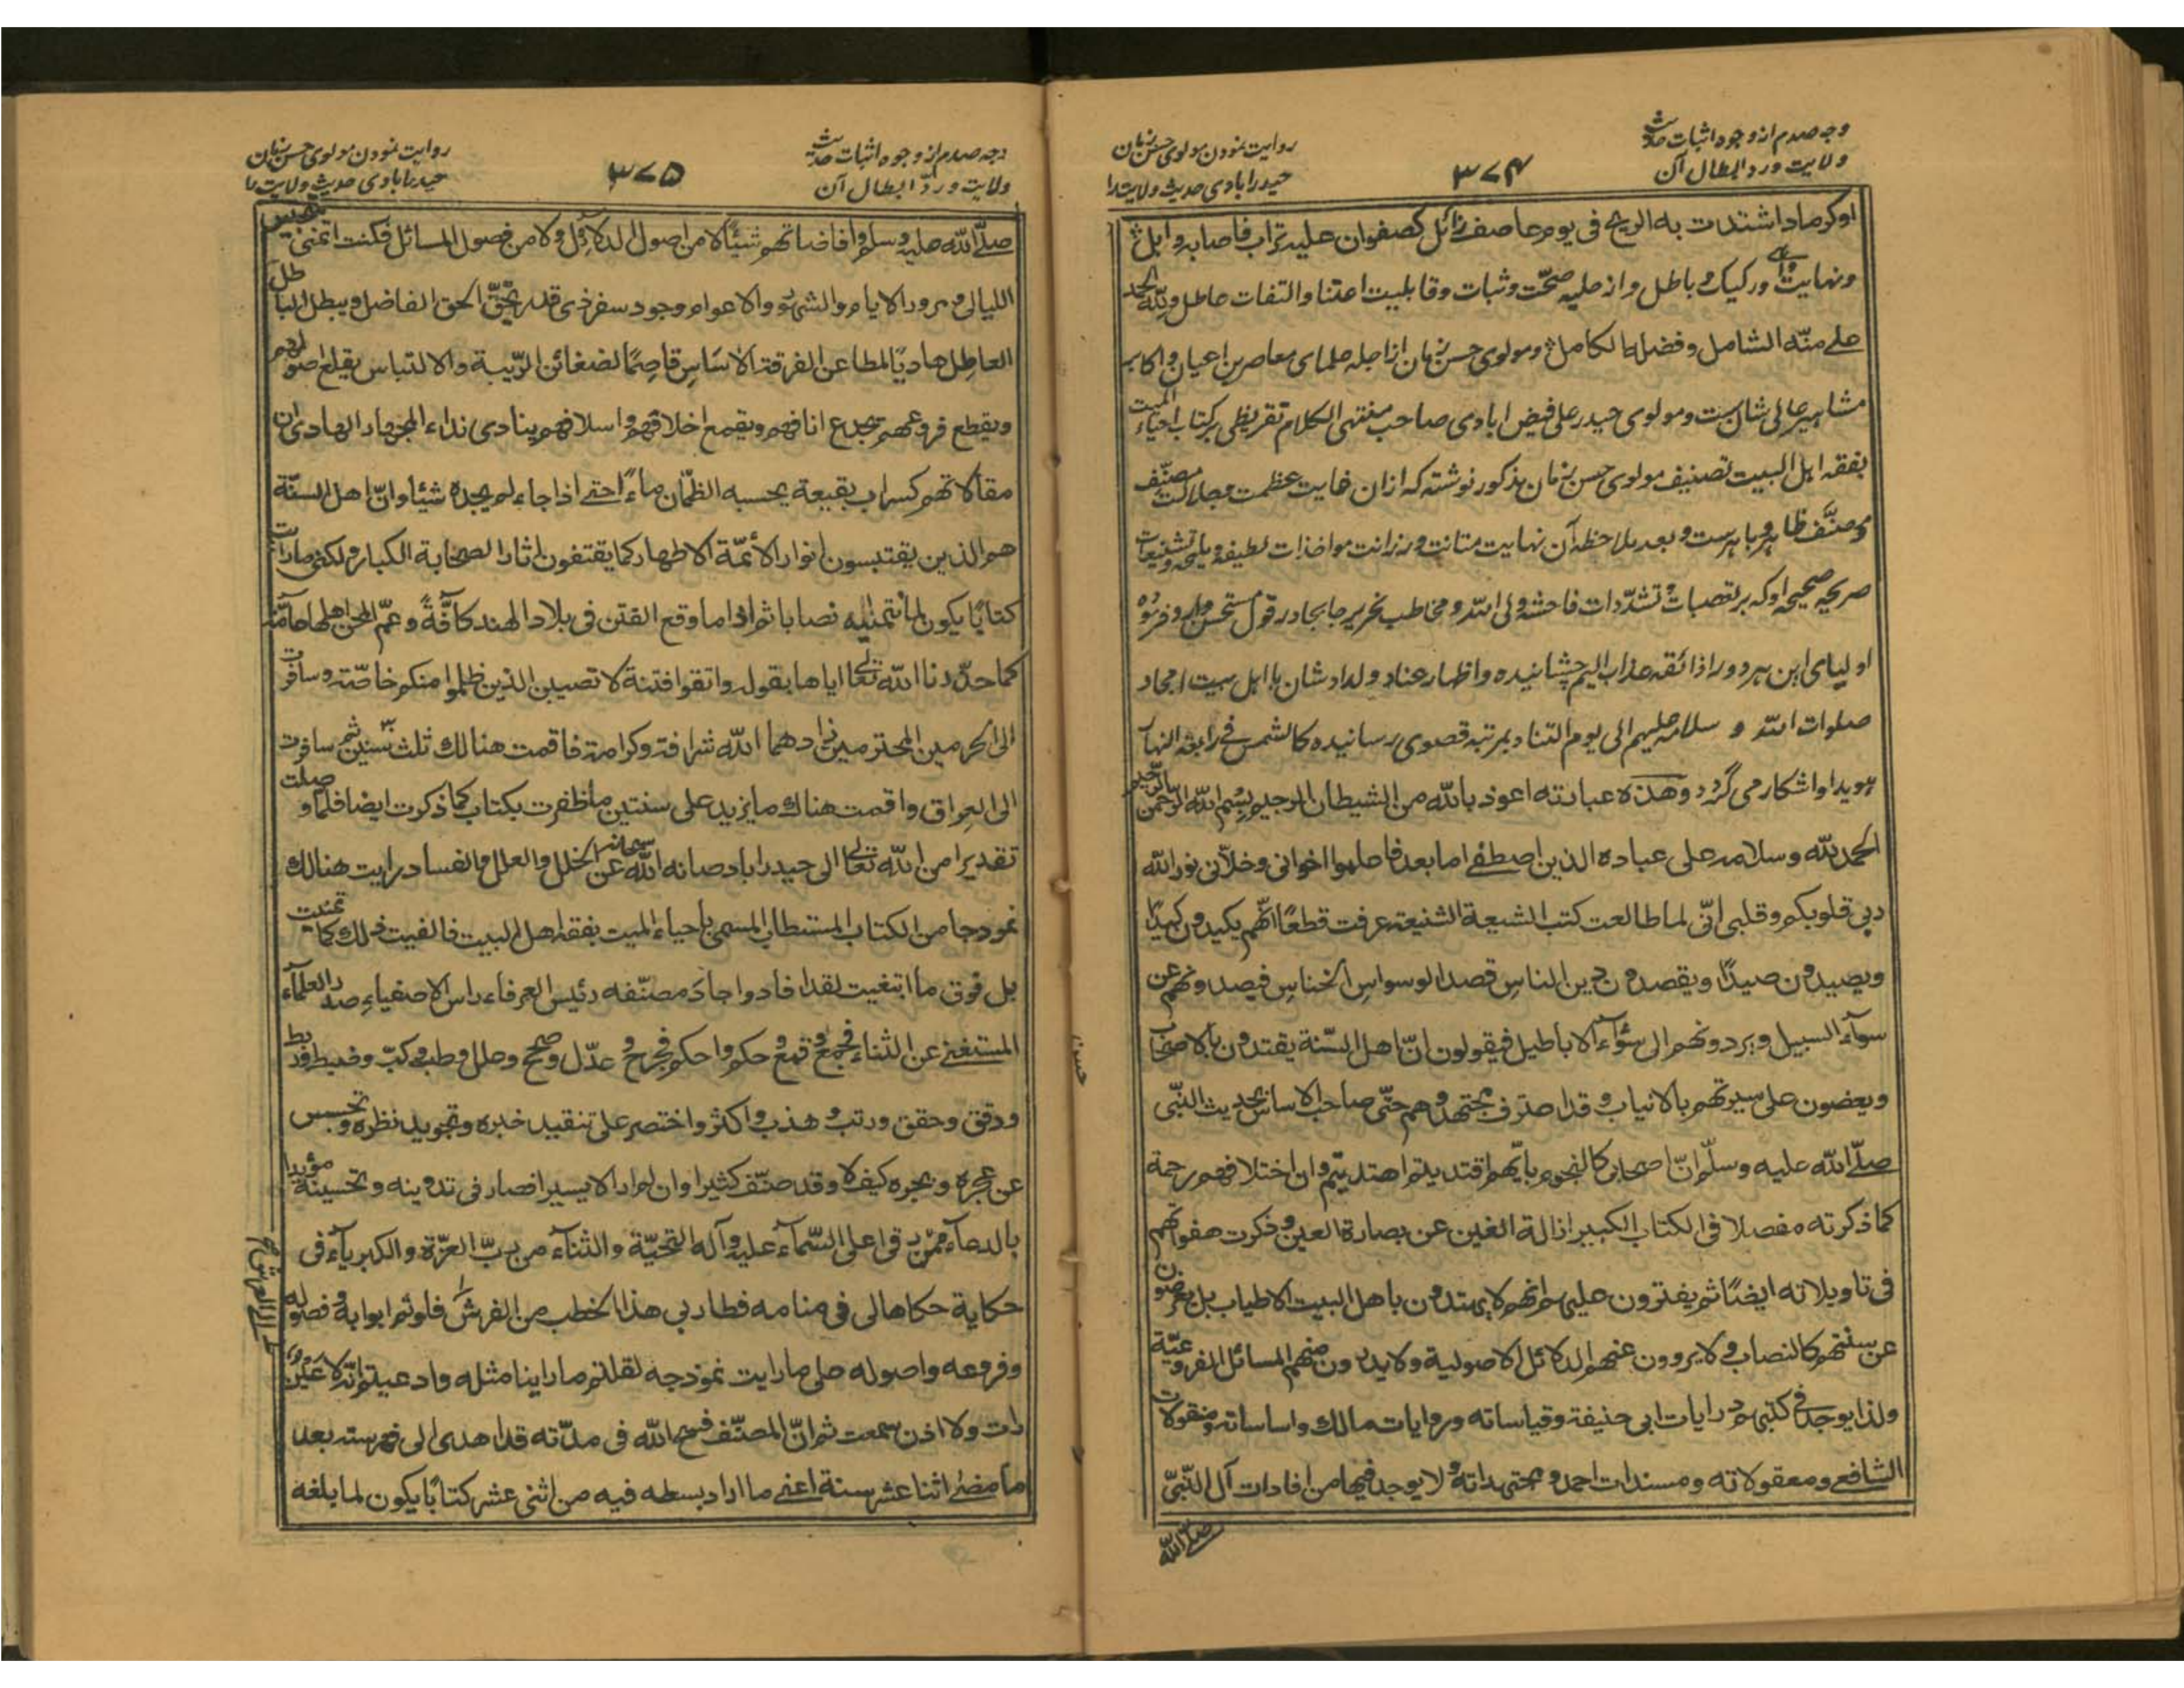 وجه صدم از وجوه اثبات حدیث
ولایت ورد ابطال آن
۳۷۴
روایت نمودن مولوی حسن زمان
حیدرابادی حدیث ولایت را
اوکرماد اشتدت به الریح فی یوم عاصف زائل کصفوان علیه تراب فاصابه وابل
ونهایت ورکیک و باطل واز حلیه صحّت وثبات وقابلیت اعتنا والتفات عاطل ولِلّه الحمد
علی منّه الشامل وفضله الکامل ومولوی حسن زمان از اجله علمای معاصرین اعیان واکابر
مشاهیر عالی شان ست ومولوی حیدر علی فیض ابادی صاحب منتهی الکلام تقریظی بر کتاب احیاء المیت
بفقه اهل البیت تصنیف مولوی حسن زمان مذکور نوشته که ازان غایت عظمت وجلالت مصنِّف
ومصنَّف ظاهر وباهرست وبعد ملاحظه آن نهایت متانت ورزانت مواخذات لطیفه وتشنیعات
صریحه صحیحه او که بر تعصبات وتشدّدات فاحشه ولی الله ومخاطب نحریر جابجا در قول مستحسن وارد فرموده
اولیای این هر دو را ذائقه عذاب الیم چشانیده واظهار عناد ولداد شان با اهل بیت امجاد
صلوات الله و سلامه علیهم الی یوم التناد بمرتبه قصوی رسانیده کالشمس فی رابعة النهار
هویدا واشکار می گردد وهذه عبارته اعوذ بالله من الشیطان الرجیم بسم الله الرحمن الرحیم
الحمد لله وسلام علی عباده الذین اصطفے اما بعد فاعلموا اخوانی وخلّانی نور الله
ربی قلوبکم وقلبی انّی لما طالعت کتب الشیعة الشنیعة عرفت قطعًا انّهم یکیدون کیدًا
ویصیدون صیدًا ویقصدون دین الناس قصد الوسواس الخناس فیصدونهم عن
سوآء السبیل ویردونهم الی سُوٓاء الاباطیل فیقولون انّ اهل السّنة یقتدون بالاصحاب
ویعضون علی سیرتهم بالانیاب وقد اعترف مجتهدوهم حتّی صاحب الاساس بحدیث النّبی
صلّے الله علیه وسلّم انّ اصحابی کالنجوم بایّهم اقتدیتم اهتدیتم وان اختلافهم رحمة
کما ذکرته مفصلا فی الکتاب الکبیر ازالة الغین عن بصارة العین وذکرت هفواتهم
فی تاویلاته ایضًا ثم یفترون علیهم انهم لا یهتدون باهل البیت الاطیاب بل یعرضون
عن سنتهم کالنصاب ولا یروون عنهم الدلائل الاصولیة ولا یدرون منهم المسائل الفروعیّة
ولذا یوجد فی کتبهم درایات ابی حنیفة وقیاساته وروایات مالك واساساته ومنقولات
الشافعے ومعقولاته ومسندات احمد ومجتهداته ولا یوجد فیها من افادات آل النّبیّ
صلّے الله
وجه صدم از وجوه اثبات حدیث
ولایت ورد ابطال آن
۳۷۵
روایت نمودن مولوی حسن زمان
حیدرابادی حدیث ولایت را
صلّے الله علیه وسلم وافاضاتهم شیئًا لا من اصول الدلائل ولا من فصول المسائل فکنت اتمنی
اللیالی ومرور الایام والشهور والاعوام وجود سفر ذی قدر یحقّ الحق الفاضل ویبطل الباطل
العاطل هادیًا لمطاعن الفرقة الاساس قاصمًا لضغائن الرّیبة والالتباس یقلع اصولهم
ویقطع فروعهم یجدع انافهم ویقمع اخلافهم واسلافهم ینادی نداء الجهار الهادی ان
مقالاتهم کسراب بقیعة یحسبه الظمّان ماءً حتے اذا جاءه لم یجده شیئا وانّ اهل السنّة
هم الذین یقتبسون انوار الائمّة الاطهار کما یقتفون اثار الصحابة الکبار ولکنی ما رایت
کتابًا یکون لما تمنیته نصابا ثم اذا ما وقع الفتن فی بلاد الهند کافّةً وعمّ المحن اهلها عامّة
کما حدّدنا الله تعالی ایاها بقوله واتقوا فتنة لا تصیبن الذین ظلموا منکم خاصّة وسافرت
الی الحرمین المحترمین زادهما الله شرافة وکرامة فاقمت هنالك ثلث سنین ثم سافرت
الی العراق واقمت هناك ما یزید علی سنتین ما ظفرت بکتاب کما ذکرت ایضا فلما وصلت
تقدیرا من الله تعالی الی حیدراباد صانه الله سبحانه عن الخلل والعلل والفساد رایت هنالك
نموذجا من الکتاب المستطاب المسمی باحیاء المیت بفقه اهل البیت فالفیت ذلك کما تمنیت
بل فوق ما ابتغیت لقد افاد واجاد مصنّفه رئیس العرفاء راس الاصفیاء صدر العلمآء
المستغنے عن الثناء فجمع وقمع وحکم واحکم وجرح وعدّل وصحح وعلل وطب وکبّ وضبط وربط
ودقق وحقق ورتب وهذب واکثر واختصر علی تنقید خبره وتجوید نظره وتجسس
عن عجره وبجره کیف لا وقد صنّف کثیرا وان لم ار الا یسیرا فصار فی تدوینه وتحسینه مؤیدا
بالدعآء ممّن رقی اعلی السّمآء علیه وآله التحیّة والثنآء من ربّ العزّة والکبریآء فی
حکایة حکاها لی فی منامه فطار بی هذا الخطب من الفرش فلو تم ابوابه وفصوله
الی العرش
وفروعه واصوله علی ما رایت نموذجه لقلتم ما راینا مثله وادعیتم انّه لا عین
رات ولا اذن سمعت ثم انّ المصنّف فسح الله فی مدّته قد اهدی الی فهرسته بعد
ما مضی اثنا عشر سنة اعنے ما اراد بسطه فیه من اثنی عشر کتابًا یکون لما بلغه